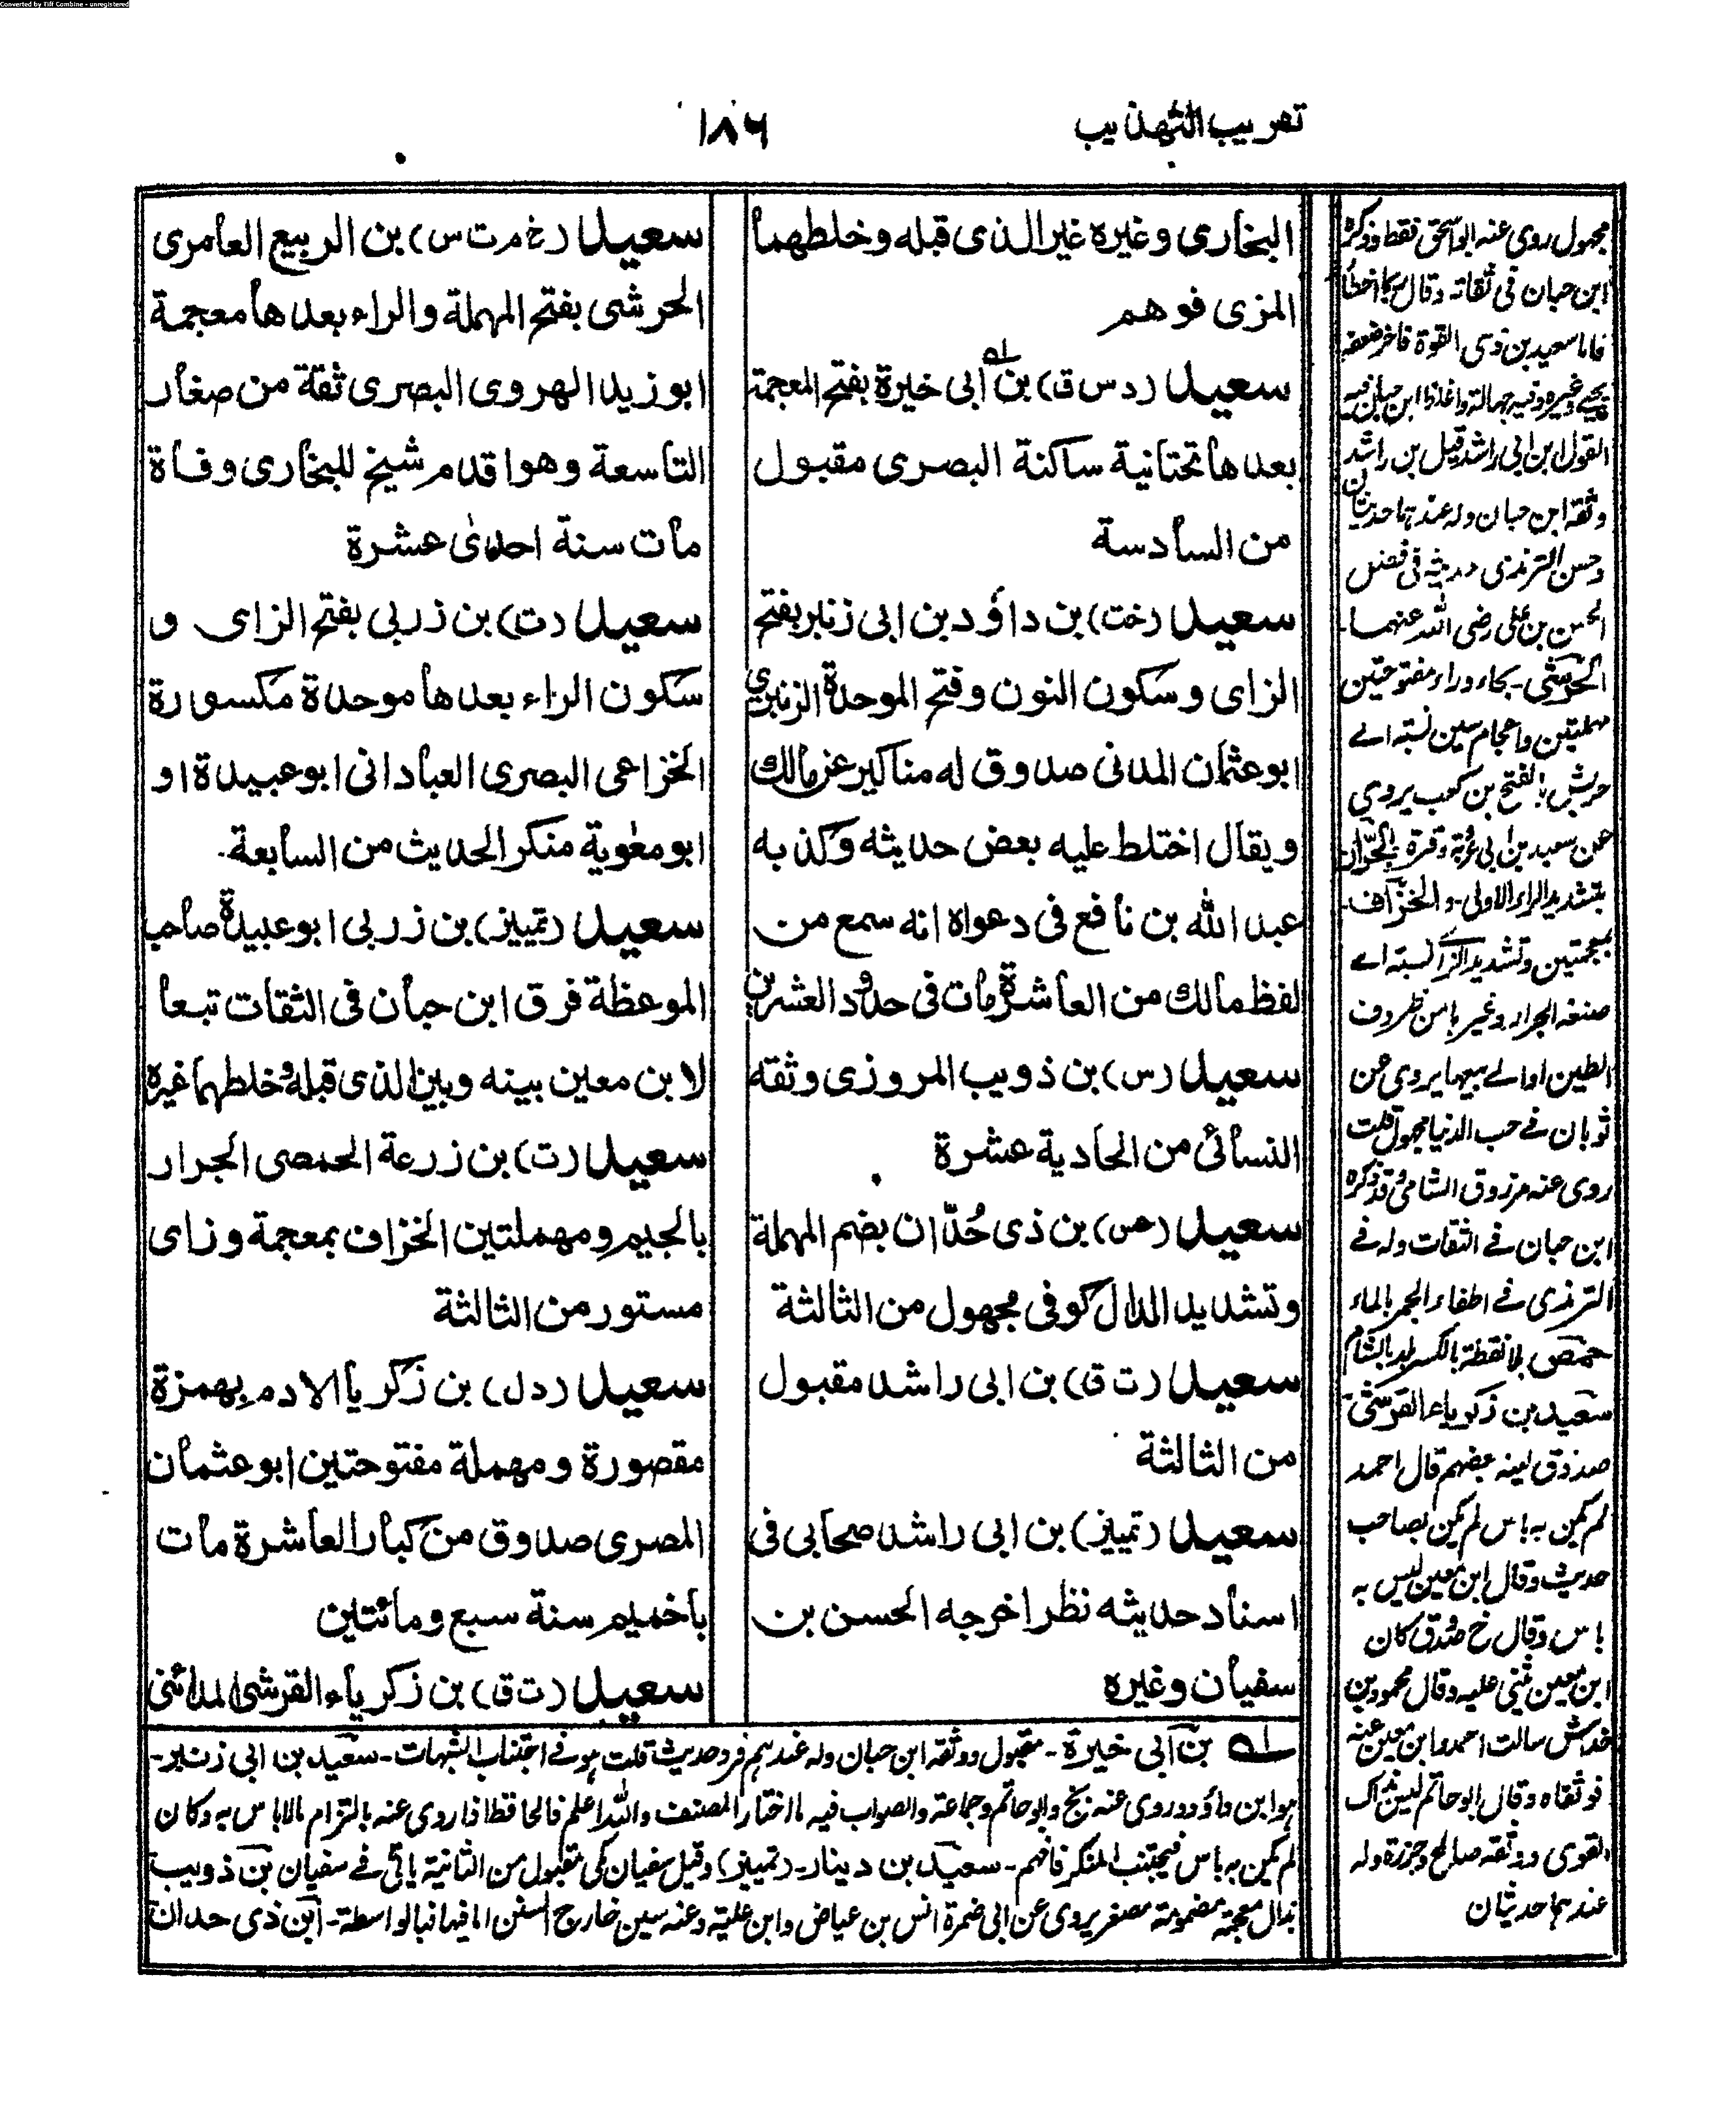 Converted by Tiff Combine - unregistered
تقريب التهذيب
١٨٦
البخاري وغيره غير الذى قبله وخلطهما
المزى فوهم
سعيد (د س ق) بن ابى خيرة بفتح المعجمة
بعدها تحتانية ساكنة البصرى مقبول
من السادسة
سعيد (خت) بن داؤد بن ابى زنبر بفتح
الزاى وسكون النون وفتح الموحدة الزنبري
ابو عثمان المدنى صدوق له مناكير عن مالك
ويقال اختلط عليه بعض حديثه وكذبه
عبد الله بن نافع فى دعواه انه سمع من
لفظ مالك من العاشرة مات فى حدود العشرين
سعيد (س) بن ذويب المروزى وثقه
النسائى من الحادية عشرة
سعيد (عس) بن ذى حُدّان بضم المهملة
وتشديد الدال كوفى مجهول من الثالثة
سعيد (ت ق) بن ابى راشد مقبول
من الثالثة
سعيد (تمييز) بن ابى راشد صحابى فى
اسناد حديثه نظر اخرجه الحسن بن
سفيان وغيره
سعيد (خ م ت س) بن الربيع العامرى
الحرشى بفتح المهملة والراء بعدها معجمة
ابو زيد الهروى البصرى ثقة من صغار
التاسعة وهو اقدم شيخ للبخارى وفاة
مات سنة احدى عشرة
سعيد (ت) بن زربى بفتح الزاى و
سكون الراء بعدها موحدة مكسورة
الخزاعى البصرى العبادانى ابو عبيدة او
ابو معوية منكر الحديث من السابعة.
سعيد (تمييز) بن زربى ابو عبيدة صاحب
الموعظة فرق ابن حبان فى الثقات تبعا
لابن معين بينه وبين الذى قبله وخلطهما غيره
سعيد (ت) بن زرعة الحمصى الجرار
بالجيم ومهملتين الخزاف بمعجمة وزاى
مستور من الثالثة
سعيد (د ل) بن زكريا الادم بهمزة
مقصورة ومهملة مفتوحتين ابو عثمان
المصرى صدوق من كبار العاشرة مات
باخميم سنة سبع ومائتين
سعيد (ت ق) بن زكرياء القرشى المدائنى
مجهول روى عنه ابو اسحق فقط وذكره
ابن حبان فى ثقاته وقال ربما اخطأ
فاما سعيد بن ذى القوة فاخر ضعفه
القول ابن ابى راشد قيل بن راشد
وثقه ابن حبان وله عندهما حديثان
وحسن الترمذى حديثه فى فضل
الحسن بن على رضى الله عنهما۔
الحَرَشى۔ بحاء وراء مفتوحتين
مهملتين واعجام سين نسبة الے
حريش بالفتح بن كعب يروي
عن سعيد بن ابى عروبة وقرة۔ الجرّار
بتشديد الراء الاولى۔ والخزّاف۔
بمعجمتين وتشديد الزا نسبة الے
صنعة الجرار وغيرها من ظروف
الطين او الے بيعها يروى عن
ثوبان فے حب الدنيا مجهول قلت
روى عنه مرزوق الشامى وقد ذكره
ابن حبان فے الثقات وله فے
الترمذى فے اطفاء الجمر بالماء
حمص بلا نقطة بالكسر بلد بالشام
سعيد بن زكرياء القرشى
صدوق لينه بعضهم قال احمد
لم يكن به باس لم يكن بصاحب
حديث وقال ابن معين ليس به
باس وقال خ صدوق كان
ابن معين يثنى عليه وقال محمود بن
خداش سالت احمد وابن معين عنه
فوثقاه وقال ابو حاتم ليس بذاك
القوى ووثقه صالح جزرة وله
عندهما حديثان
لـه بن ابى خيرة۔ مقبول ووثقه ابن حبان وله عندهم فرد حديث قلت هو فے اجتناب الشبهات۔ سعيد بن ابى زنبر۔
هو ابن داؤد وروى عنه بخ وابو حاتم وجماعة والصواب فيه ما اختار المصنف والله اعلم فالحافظ اذا روى عنه بالتزام مالا باس به وكان
لم يكن به باس فيجتنب المنكر فافهم۔ سعيد بن دينار۔ (تمييز) وقيل سفيان مكى مقبول من الثانية ياتى فے سفيان بن ذويب
بذال معجمة مضمومة مصغر يروى عن ابى ضمرة انس بن عياض وابن علية وعنه سين خارج السنن اما فيها فبالواسطة۔ ابن ذى حدان